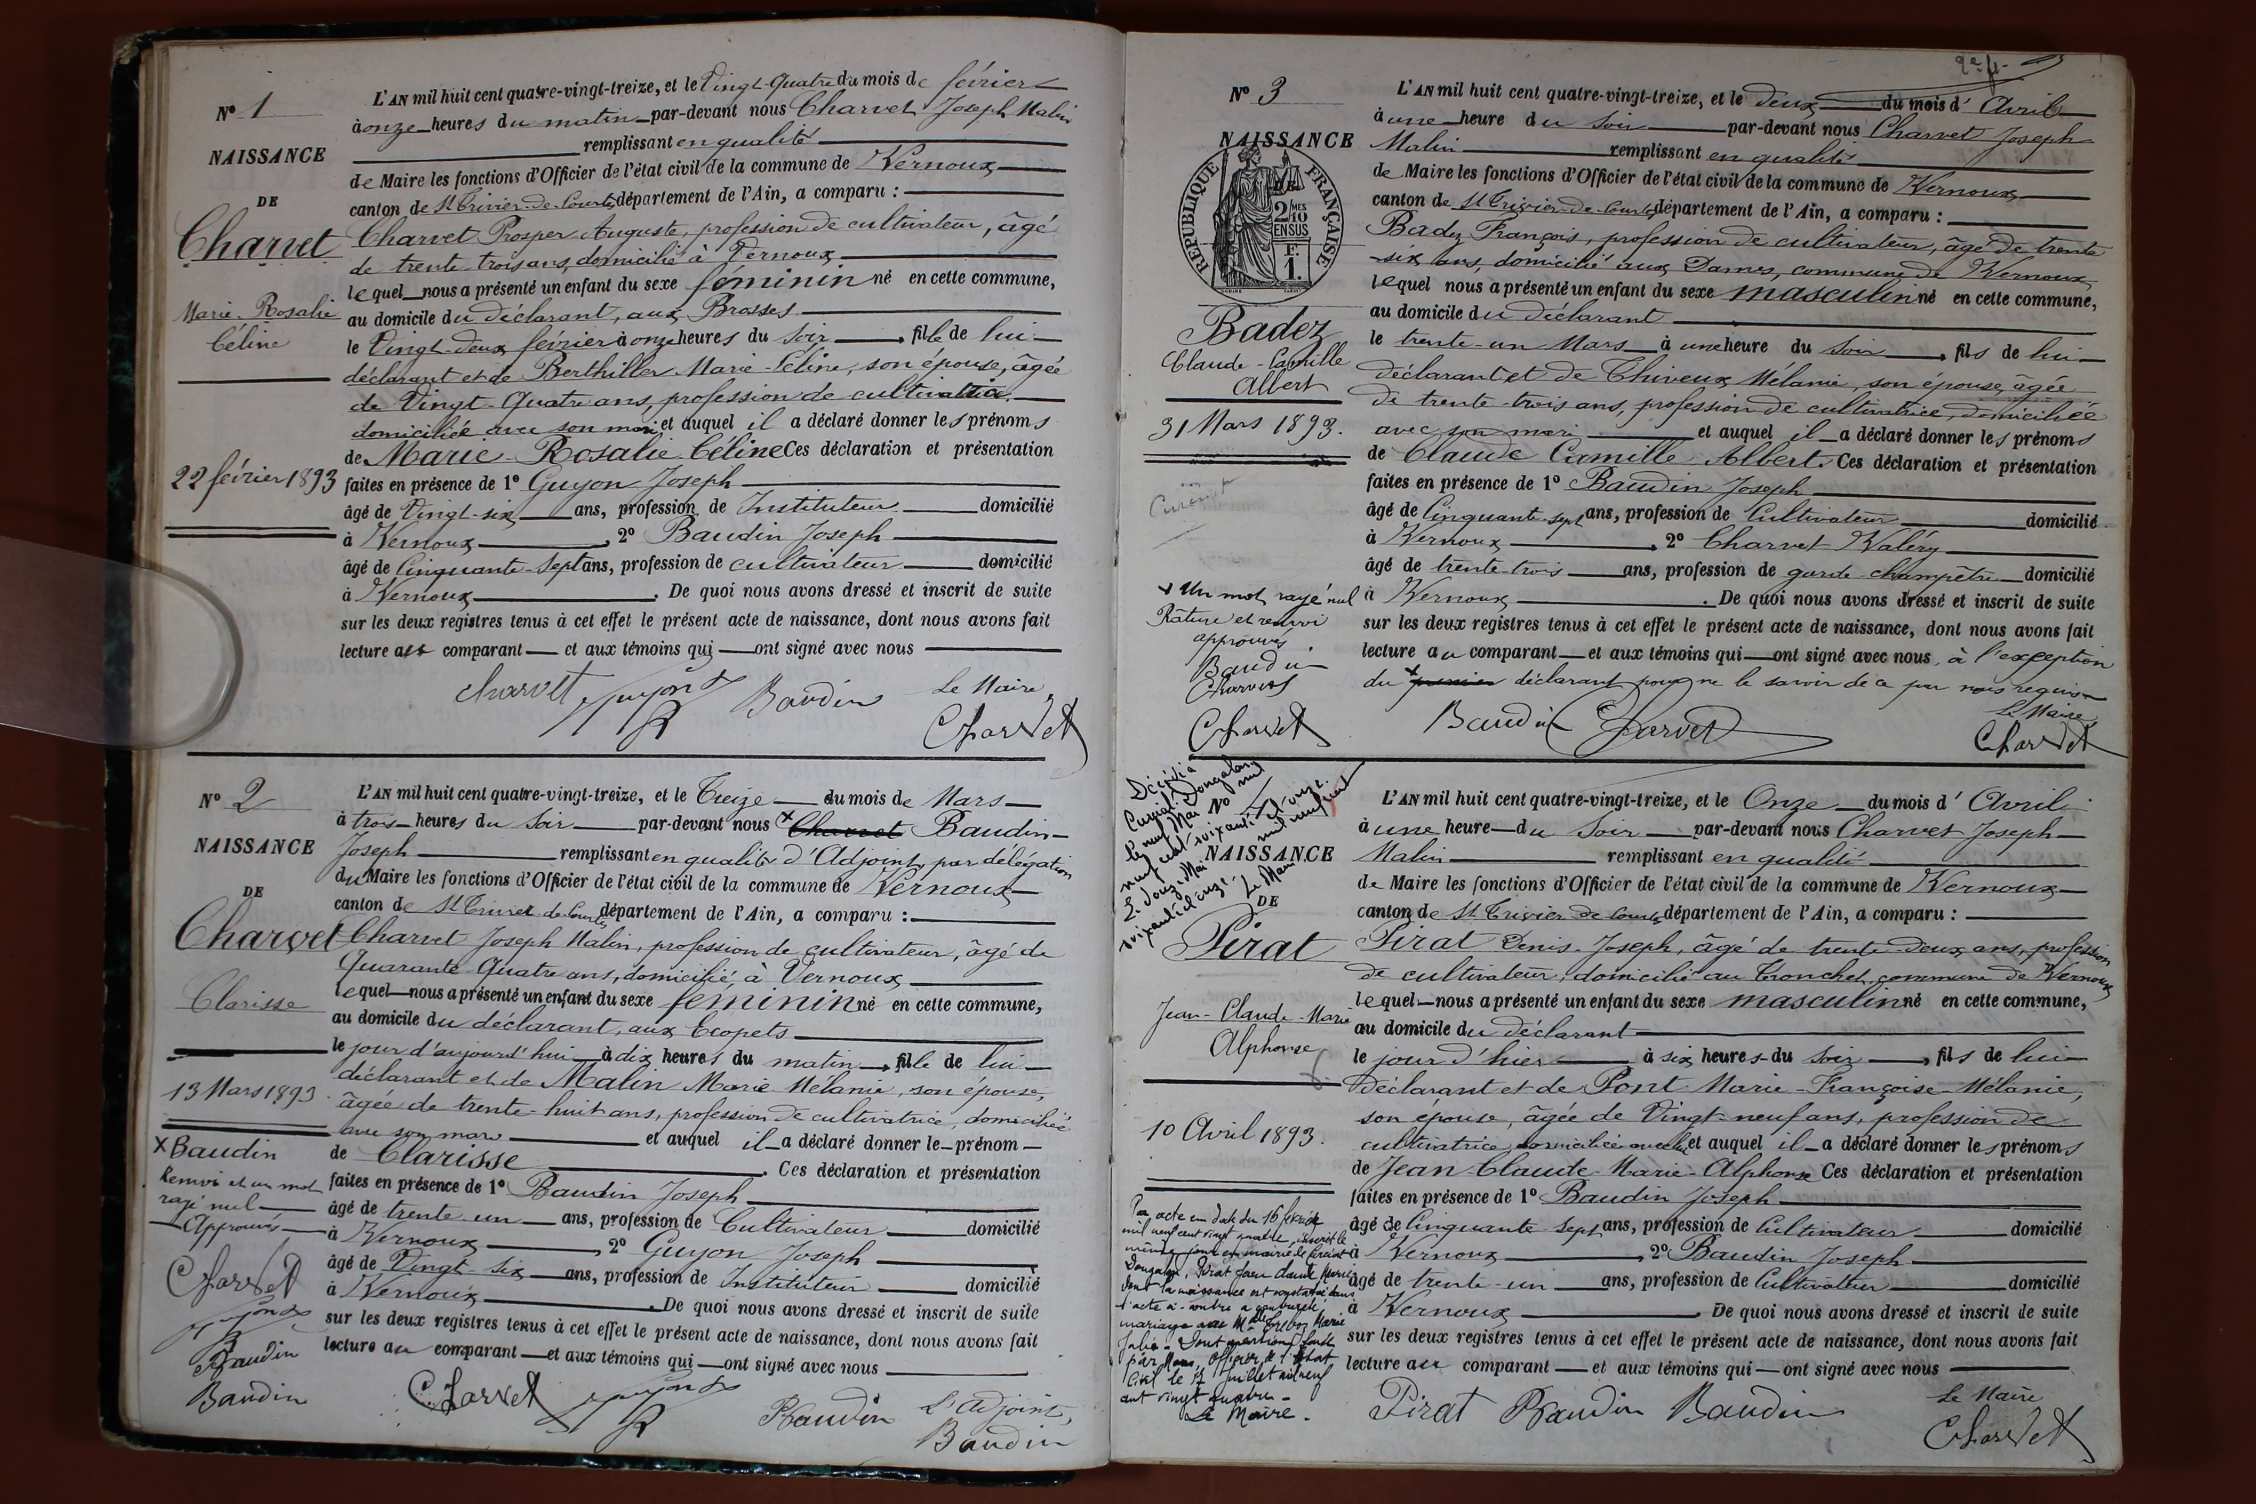 Nº 1
NAISSANCE
DE
Charvet
Marie Rosalie
Céline
22 février 1893
L'AN mil huit cent quatre-vingt-treize, et le Vingt-Quatre du mois de février
à onze heures du matin par-devant nous Charvet Joseph Malin
remplissant en qualité
de Maire les fonctions d'Officier de l'état civil de la commune de Vernoux
canton de St Trivier-de-Courtes département de l'Ain, a comparu :
Charvet Prosper Auguste, profession de cultivateur, âgé
de trente-trois ans, domicilié à Vernoux
lequel nous a présenté un enfant du sexe féminin né en cette commune,
au domicile du déclarant, aux Brosses
le Vingt-deux février à onze heures du soir, fille de lui
déclarant et de Berthiller Marie-Céline, son épouse, âgée
de Vingt-Quatre ans, profession de cultivatrice
domiciliée avec son mari et auquel il a déclaré donner les prénoms
de Marie Rosalie Céline Ces déclaration et présentation
faites en présence de 1º Guyon Joseph
âgé de Vingt-six ans, profession de Instituteur domicilié
à Vernoux, 2º Baudin Joseph
âgé de Cinquante-Sept ans, profession de cultivateur domicilié
à Vernoux. De quoi nous avons dressé et inscrit de suite
sur les deux registres tenus à cet effet le présent acte de naissance, dont nous avons fait
lecture au comparant et aux témoins qui ont signé avec nous
Charvet Guyon J Baudin Le Maire,
Charvet
Nº 2
NAISSANCE
DE
Charvet
Clarisse
13 Mars 1893
x Baudin
Renvoi et un mot
rayé nul
Approuvés
Charvet
Guyon J
Baudin
Baudin
L'AN mil huit cent quatre-vingt-treize, et le Treize du mois de Mars
à trois heures du soir par-devant nous x Charvet Baudin
Joseph remplissant en qualité d'Adjoint, par délégation
du Maire les fonctions d'Officier de l'état civil de la commune de Vernoux
canton de St Trivier-de-Courtes département de l'Ain, a comparu :
Charvet Joseph Malin, profession de cultivateur, âgé de
Quarante-Quatre ans, domicilié, à Vernoux
lequel nous a présenté un enfant du sexe féminin né en cette commune,
au domicile du déclarant, aux Ecopets
le jour d'aujourd'hui à dix heures du matin, fille de lui
déclarant et de Malin Marie Mélanie, son épouse,
âgée de trente-huit ans, profession de cultivatrice, domiciliée
avec son mari et auquel il a déclaré donner le prénom
de Clarisse. Ces déclaration et présentation
faites en présence de 1º Baudin Joseph
âgé de trente un ans, profession de Cultivateur domicilié
à Vernoux, 2º Guyon Joseph
âgé de Vingt-Six ans, profession de Instituteur domicilié
à Vernoux. De quoi nous avons dressé et inscrit de suite
sur les deux registres tenus à cet effet le présent acte de naissance, dont nous avons fait
lecture au comparant et aux témoins qui ont signé avec nous
Charvet Guyon J Baudin L'Adjoint,
Baudin
2e f.
Nº 3
NAISSANCE
DE
RÉPUBLIQUE FRANÇAISE
2/10 MES
EN SUS
1 F.
Badez
Claude-Camille
Albert
31 Mars 1893.
x Un mot rayé nul
Rature et renvoi
approuvés
Baudin
Charvet
Charvet
L'AN mil huit cent quatre-vingt-treize, et le deux du mois d'Avril
à une heure du soir par-devant nous Charvet Joseph
Malin remplissant en qualité
de Maire les fonctions d'Officier de l'état civil de la commune de Vernoux
canton de St Trivier-de-Courtes département de l'Ain, a comparu :
Badez François, profession de cultivateur, âgé de trente
-six ans, domicilié aux Dames, commune de Vernoux
lequel nous a présenté un enfant du sexe masculin né en cette commune,
au domicile du déclarant
le trente-un Mars à une heure du soir, fils de lui
déclarant et de Thiveux Mélanie, son épouse, âgée
de trente-trois ans, profession de cultivatrice, domiciliée
avec son mari et auquel il a déclaré donner les prénoms
de Claude Camille Albert. Ces déclaration et présentation
faites en présence de 1º Baudin Joseph
âgé de Cinquante-sept ans, profession de Cultivateur domicilié
à Vernoux, 2º Charvet Valéry
âgé de trente-trois ans, profession de garde-champêtre domicilié
à Vernoux. De quoi nous avons dressé et inscrit de suite
sur les deux registres tenus à cet effet le présent acte de naissance, dont nous avons fait
lecture au comparant et aux témoins qui ont signé avec nous, à l'exception
du x premier déclarant pour ne le savoir de ce par nous requis
Baudin Charvet Le Maire,
Charvet
Décédé à
Curciat-Dongalon
le neuf Mai mil
neuf cent soixante et onze.
Le douze Mai mil neuf cent
soixante et onze. Le Maire
NAISSANCE
DE
Pirat
Jean-Claude-Marie
Alphonse
10 Avril 1893.
Par acte en date du 16 février
mil neuf cent vingt quatre, inscrit le
même jour en mairie de Curciat
Dongalon, Pirat Jean Claude Marie
dont la naissance est constatée dans
l'acte ci-contre a contracté
mariage avec Mlle Marie
Julie. Dont mention faite
par Nous, Officier de l'Etat
Civil le 17 Juillet mil neuf
cent vingt quatre.
Le Maire.
L'AN mil huit cent quatre-vingt-treize, et le Onze du mois d'Avril
à une heure du Soir par-devant nous Charvet Joseph
Malin remplissant en qualité
de Maire les fonctions d'Officier de l'état civil de la commune de Vernoux
canton de St Trivier-de-Courtes département de l'Ain, a comparu :
Pirat Denis-Joseph, âgé de trente-deux ans, profession
de cultivateur, domicilié au Tronchet, commune de Vernoux
lequel nous a présenté un enfant du sexe masculin né en cette commune,
au domicile du déclarant
le jour d'hier à six heures du soir, fils de lui
déclarant et de Pont Marie-Françoise-Mélanie,
son épouse, âgée de Vingt-neuf ans, profession de
cultivatrice, domiciliée avec lui et auquel il a déclaré donner les prénoms
de Jean Claude-Marie-Alphonse Ces déclaration et présentation
faites en présence de 1º Baudin Joseph
âgé de Cinquante-sept ans, profession de Cultivateur domicilié
à Vernoux, 2º Baudin Joseph
âgé de trente-un ans, profession de Cultivateur domicilié
à Vernoux. De quoi nous avons dressé et inscrit de suite
sur les deux registres tenus à cet effet le présent acte de naissance, dont nous avons fait
lecture au comparant et aux témoins qui ont signé avec nous
Pirat Baudin Baudin Le Maire
Charvet